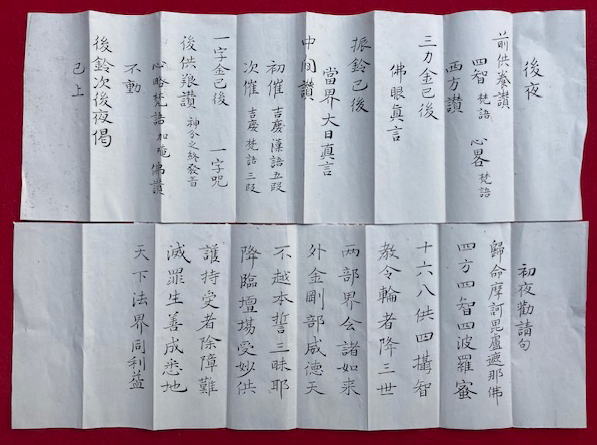 後夜
前供養讃
四智 梵語 心畧 梵語
西方讃
三力金已後
佛眼眞言
振鈴已後
當界大日真言
中間讃
初催 吉慶漢語五段
次催 吉慶梵語三段
一字金已後 一字咒
後供養讃 神分之終發音
心略梵語 佛讃
不動
後鈴次後夜偈
已上
初夜勸請句
歸命摩訶毘盧遮那佛
四方四智四波羅蜜
十六八供四攝智
教令輪者降三世
两部界会諸如来
外金剛部威德天
不越本誓三昧耶
降臨壇場受妙供
護持受者除障難
滅罪生善成悉地
天下法界同利益